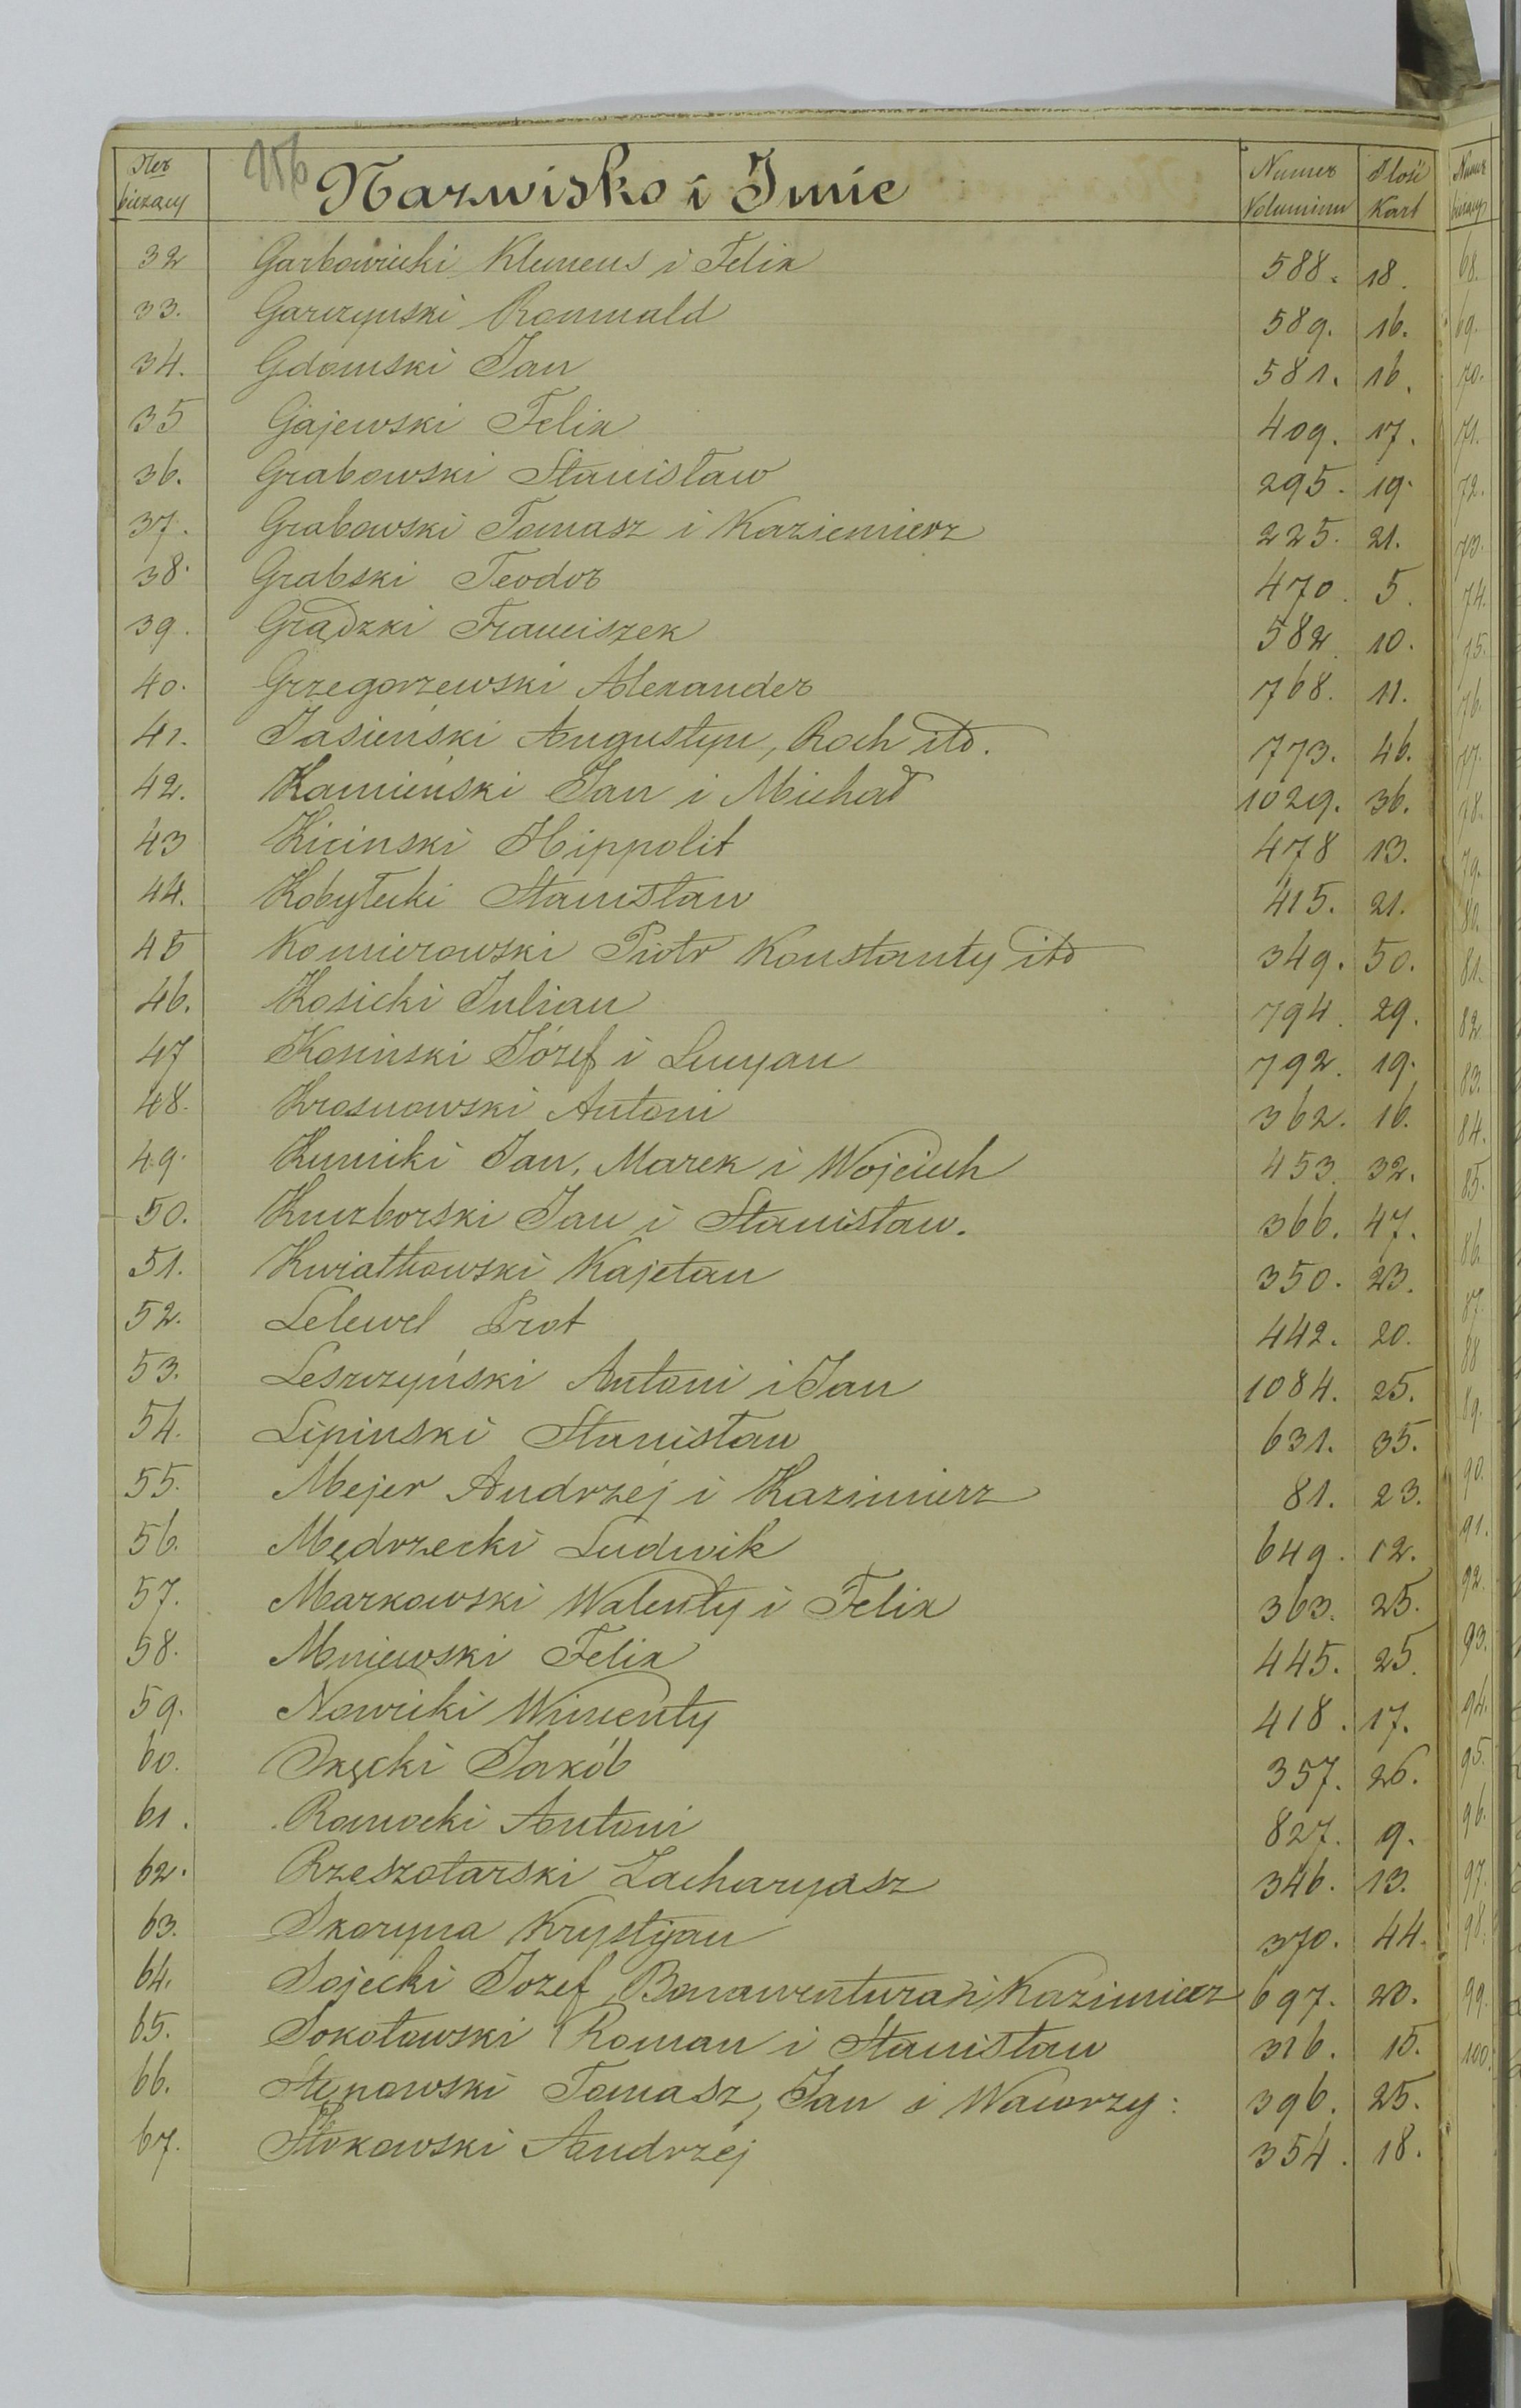 Ner bieżący 956 Nazwisko i Imie Numer Voluminu Ilość Kart
32 Garbowiecki Klemens i Felix 588. 18.
33. Garczynski Romuald 589. 16.
34. Gdomski Jan 581. 16.
35 Gajewski Felix 409. 17.
36. Grabowski Stanisław 295. 19.
37. Grabowski Tomasz i Kazimierz 225. 21.
38. Grabski Teodor 470. 5.
39. Grądzki Franciszek 582 10.
40. Grzegorzewski Alexander 768. 11.
41. Jasieński Augustyn, Roch itd. 773. 46.
42. Kamieński Jan i Michał 1029. 36.
43 Kicinski Hippolit 478 13.
44. Kobyłecki Stanisław 415. 21.
45 Komierowski Piotr Konstanty itd 349. 50.
46. Kosicki Julian 794. 29.
47 Kosinski Józef i Lucyan 792. 19.
48. Krosnowski Antoni 362. 16.
49. Kunicki Jan, Marek i Wojciech 453. 32.
50. Kuczborski Jan i Stanisław. 366. 47.
51. Kwiatkowski Kajetan 350. 23.
52. Lelewel Prot 442. 20.
53. Leszczyński Antoni i Jan 1084. 25.
54. Lipinski Stanisław 631. 35.
55. Mejer Andrzej i Kazimierz 81. 23.
56. Mędrzecki Ludwik 649. 12.
57. Markowski Walenty i Felix 363. 25.
58. Mniewski Felix 445. 25.
59. Nowicki Wincenty 418. 17.
60. Okęcki Jakób 357. 26.
61. Romocki Antoni 827. 9.
62. Rzeszotarski Zacharyasz 346. 13.
63. Skoryna Krystyan 370. 44.
64. Sojecki Jozef, Bonawentura i Kazimierz 697. 20.
65. Sokołowski Roman i Stanisław 316. 15.
66. Stępowski Tomasz, Jan i Wawrzy: 396. 25.
67. Stokowski Andrzej 354. 18.